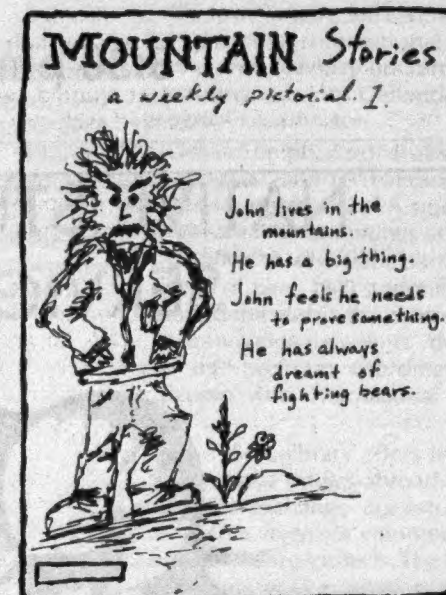 MOUNTAIN Stories
a weekly pictorial 1.
John lives in the
mountains.
He has a big thing.
John feels he needs
to prove something.
He has always
dreamt of
fighting bears.